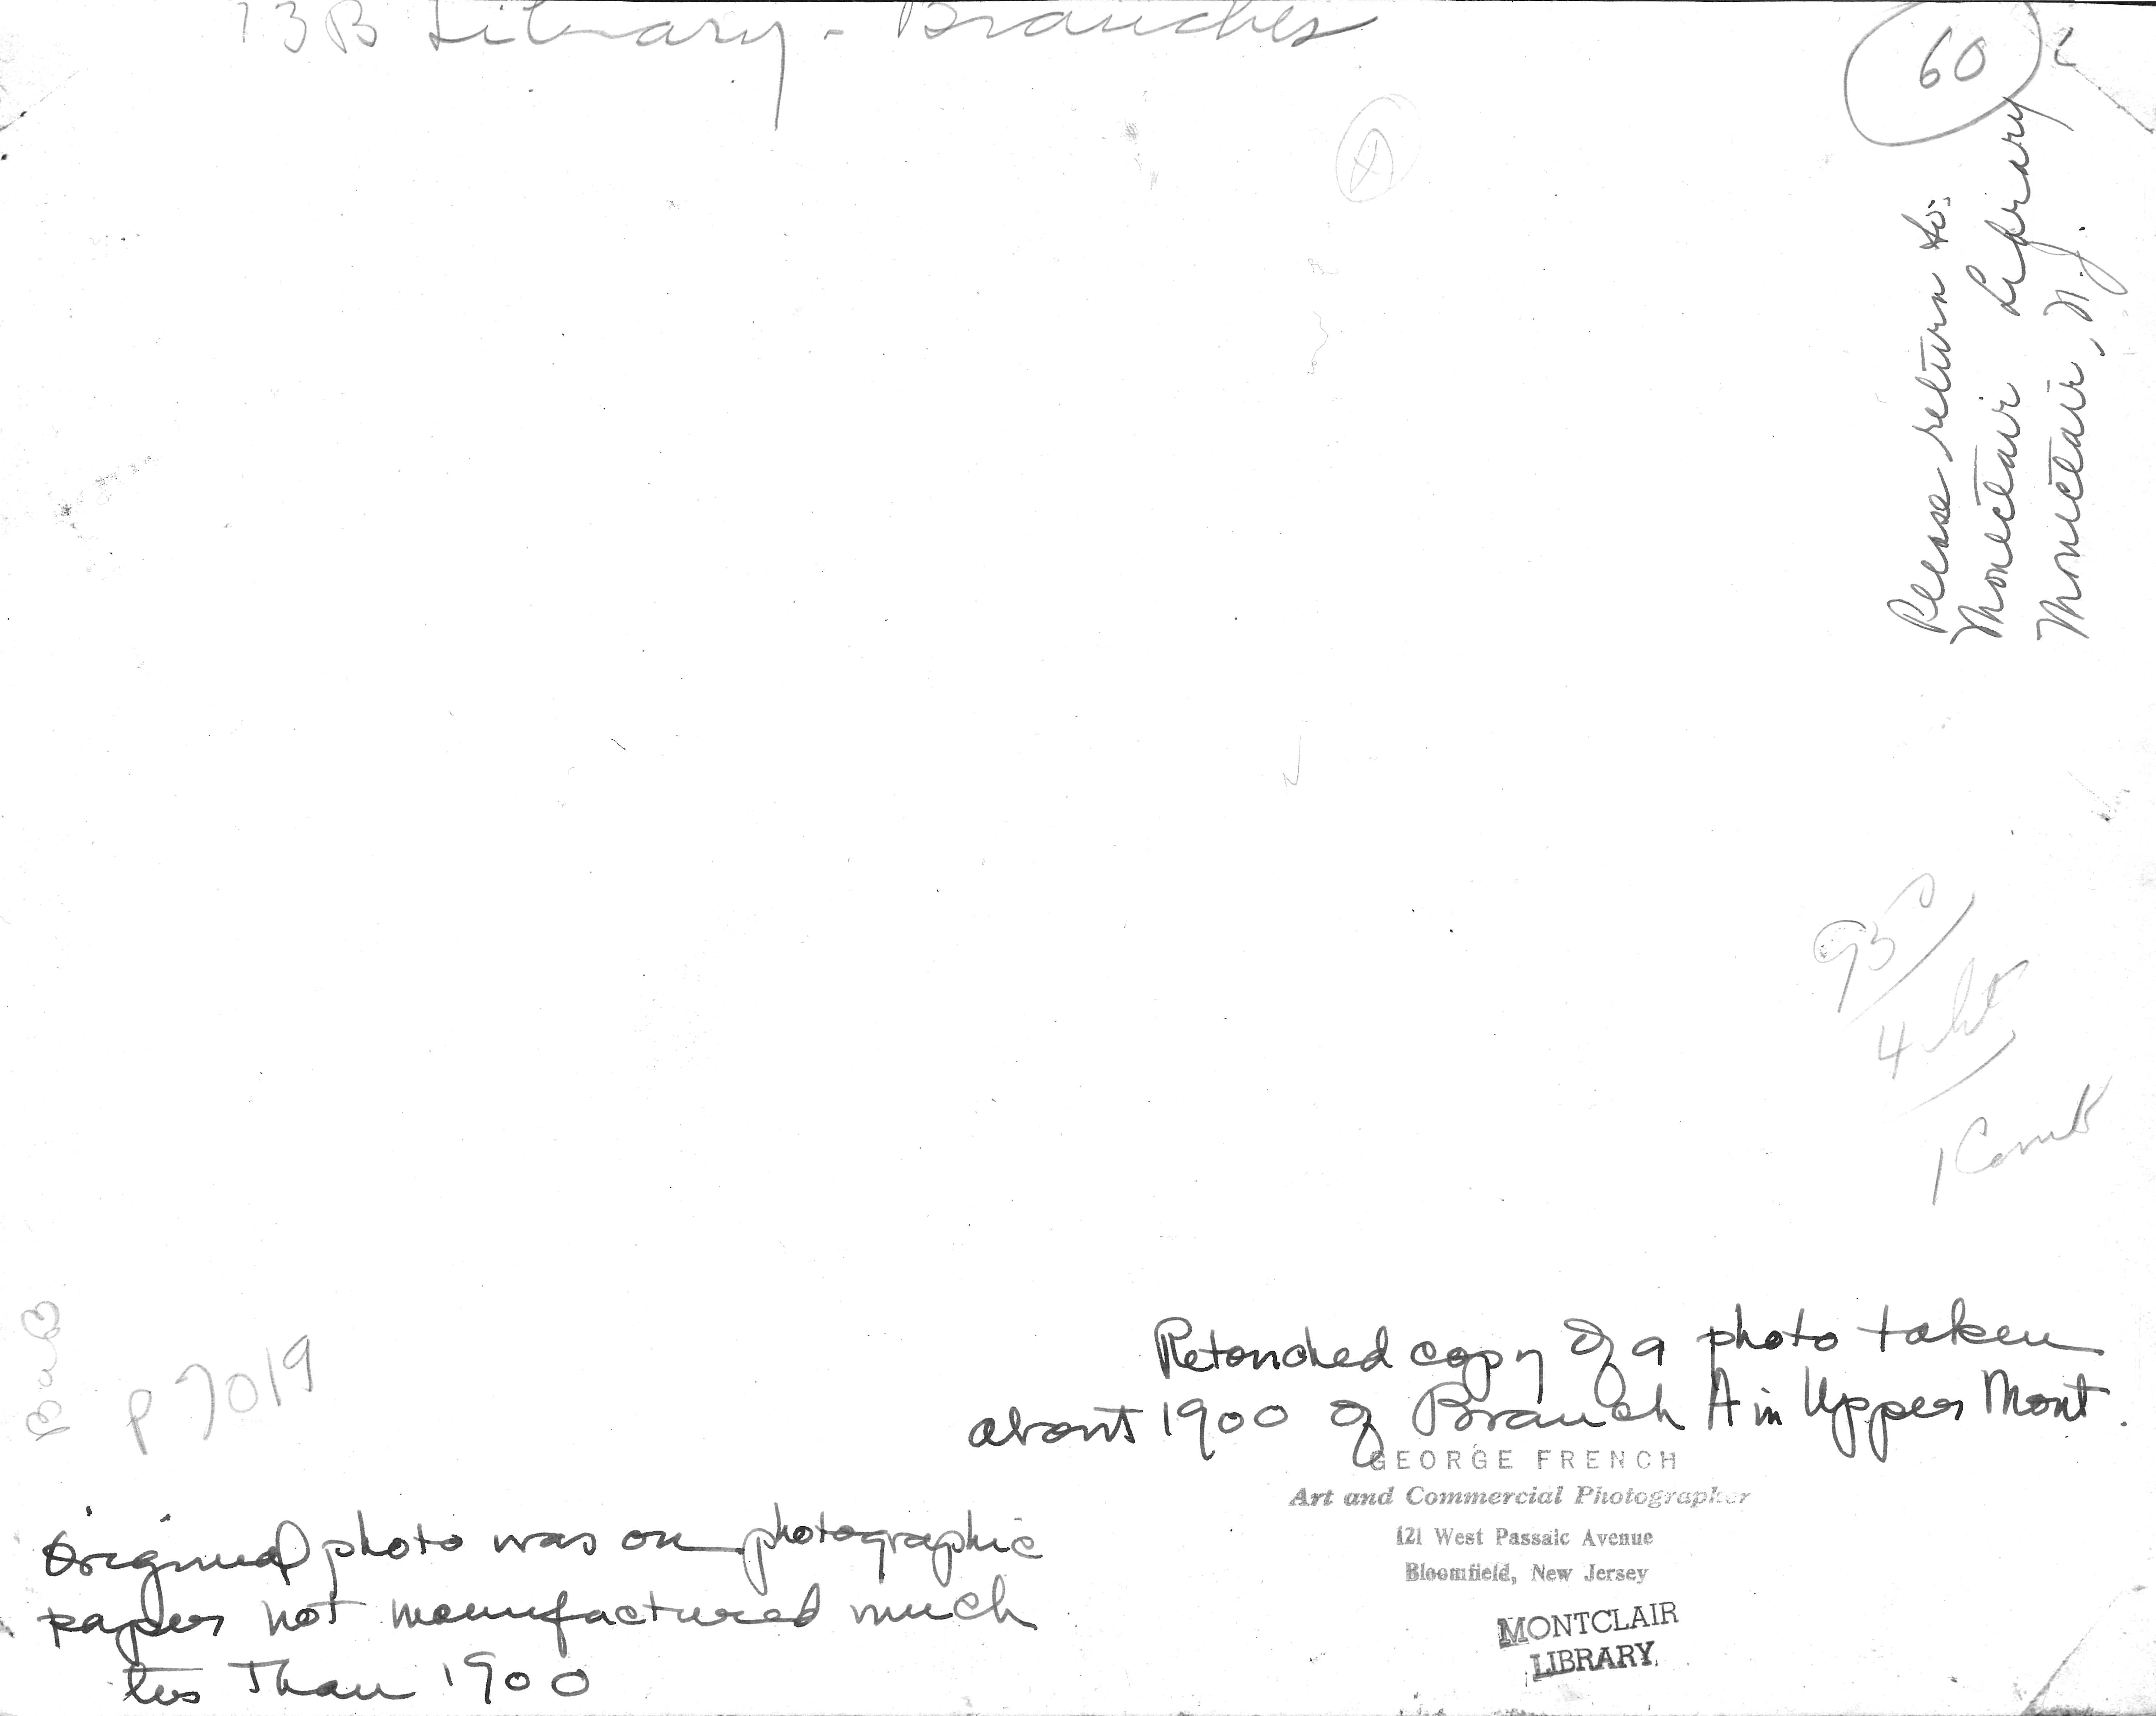 13B Library - Branches
60
Please return to:
Montclair Library
Montclair, N.J.
4
1 Comb
P 7019
Retouched copy of a photo taken
about 1900 of Branch A in Upper Mont.
GEORGE FRENCH
Art and Commercial Photographer
121 West Passaic Avenue
Bloomfield, New Jersey
MONTCLAIR
LIBRARY.
Original photo was on photographic
paper not manufactured much
than 1900